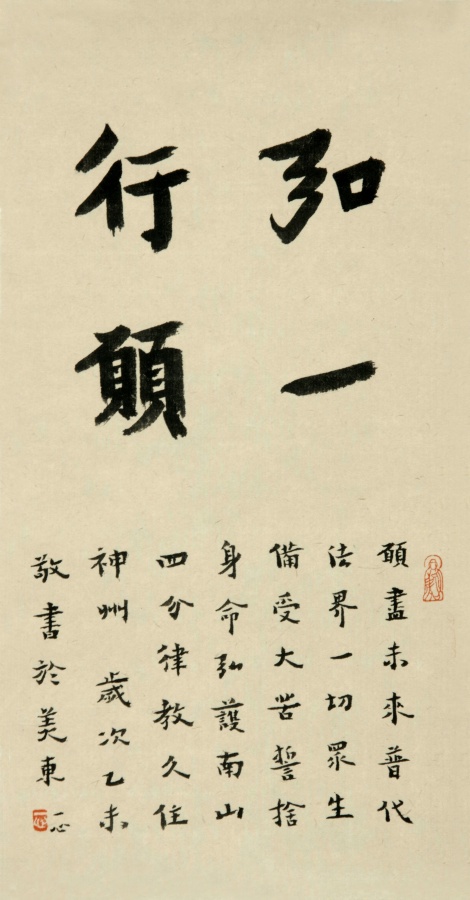 弘一
行願
願盡未來普代
法界一切眾生
備受大苦誓捨
身命弘護南山
四分律教久住
神州 歲次乙未
敬書於美東 一心
一心